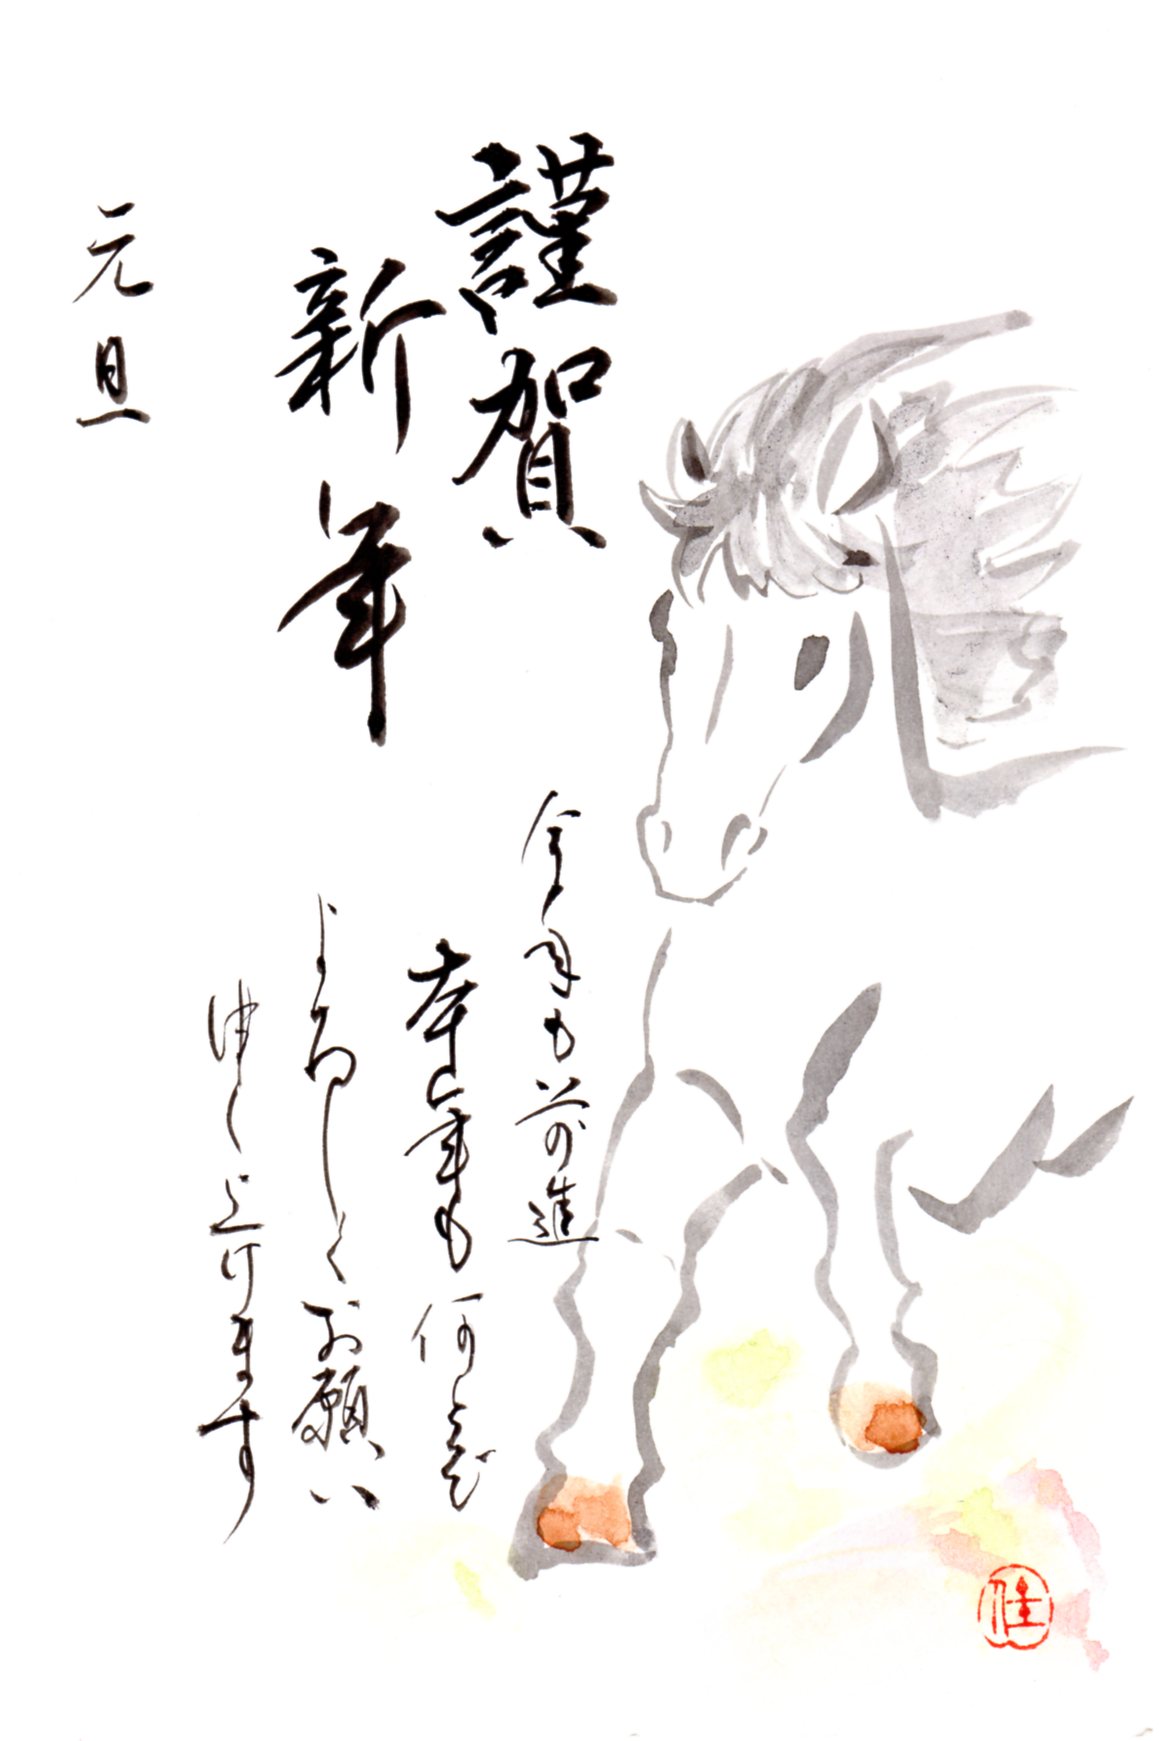 謹賀
新年
今年も前進
本年も何とぞ
よろしくお願い
申し上げます
元旦
佳